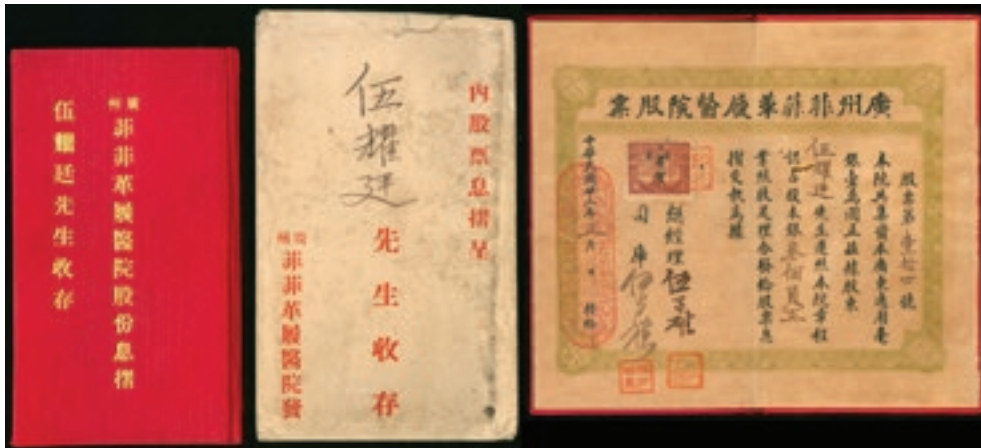 廣州
菲菲革履醫院股份息摺
伍耀廷先生收存
內股票息摺呈
伍耀廷
先生收存
廣州
菲菲革履醫院發
廣州菲菲革履醫院股票
股票第壹拾 號
本院共集資本廣東通用毫
銀壹萬圓正茲據股東
伍耀廷先生遵照本院章程
認占股本銀叁佰 正
業經收足理合發給股票息
摺交執為據
總經理
司庫
中華民國廿三年 月 日 發給